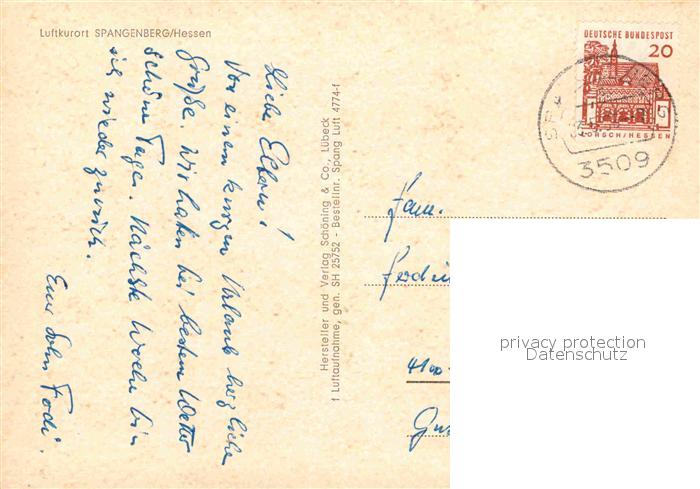 Luftkurort SPANGENBERG/Hessen
Liebe Eltern!
Von einem kurzen Urlaub herzliche
Grüße. Wir haben bei bestem Wetter
schöne Tage. Nächste Woche bin
ich wieder zurück.
Euer Sohn Ferdi.
Hersteller und Verlag Schöning & Co., Lübeck
f Luftaufnahme, gen. SH 25752 - Bestellnr. Spang Luft 4774-f
DEUTSCHE BUNDESPOST
20
LORSCH/HESSEN
3509
Fam.
4100
privacy protection
Datenschutz